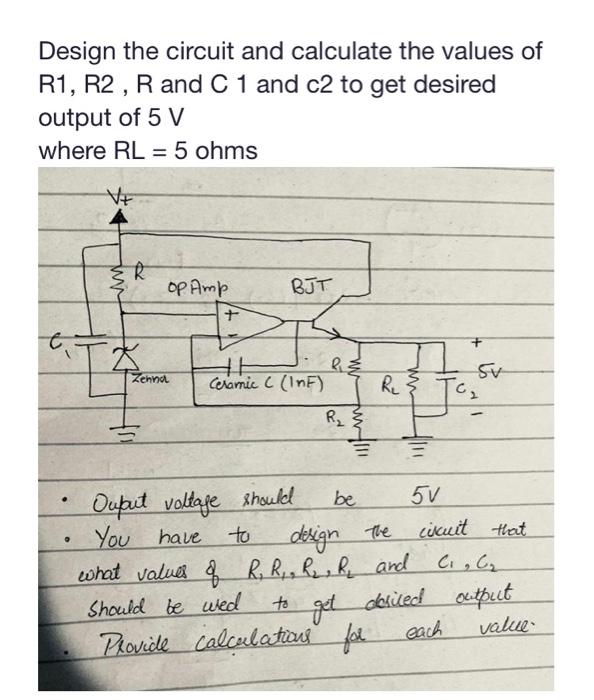 Design the circuit and calculate the values of
R1, R2 , R and C 1 and c2 to get desired
output of 5 V
where RL = 5 ohms
V+
R
OP Amp
BJT
+
-
C1
Zenna
Ceramic C (1nF)
R1
R2
RL
C2
+
5V
-
• Ouput voltage should be 5V
• You have to design the circuit that
what values of R, R1, R2, RL and C1, C2
Should be used to get desired output
• Provide calculations for each value.